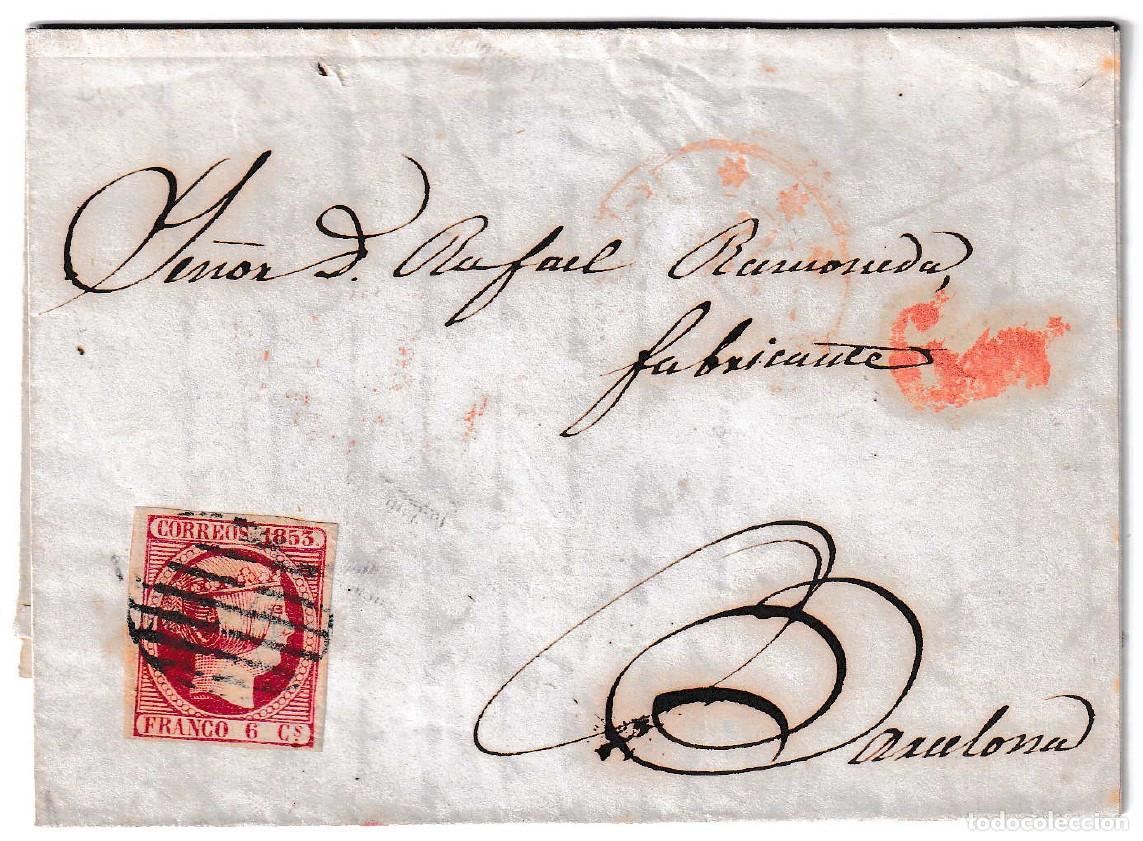 Señor D. Rafael Ramoneda,
fabricante
CORREOS 1853.
FRANCO 6 Cs
Barcelona
todocoleccion